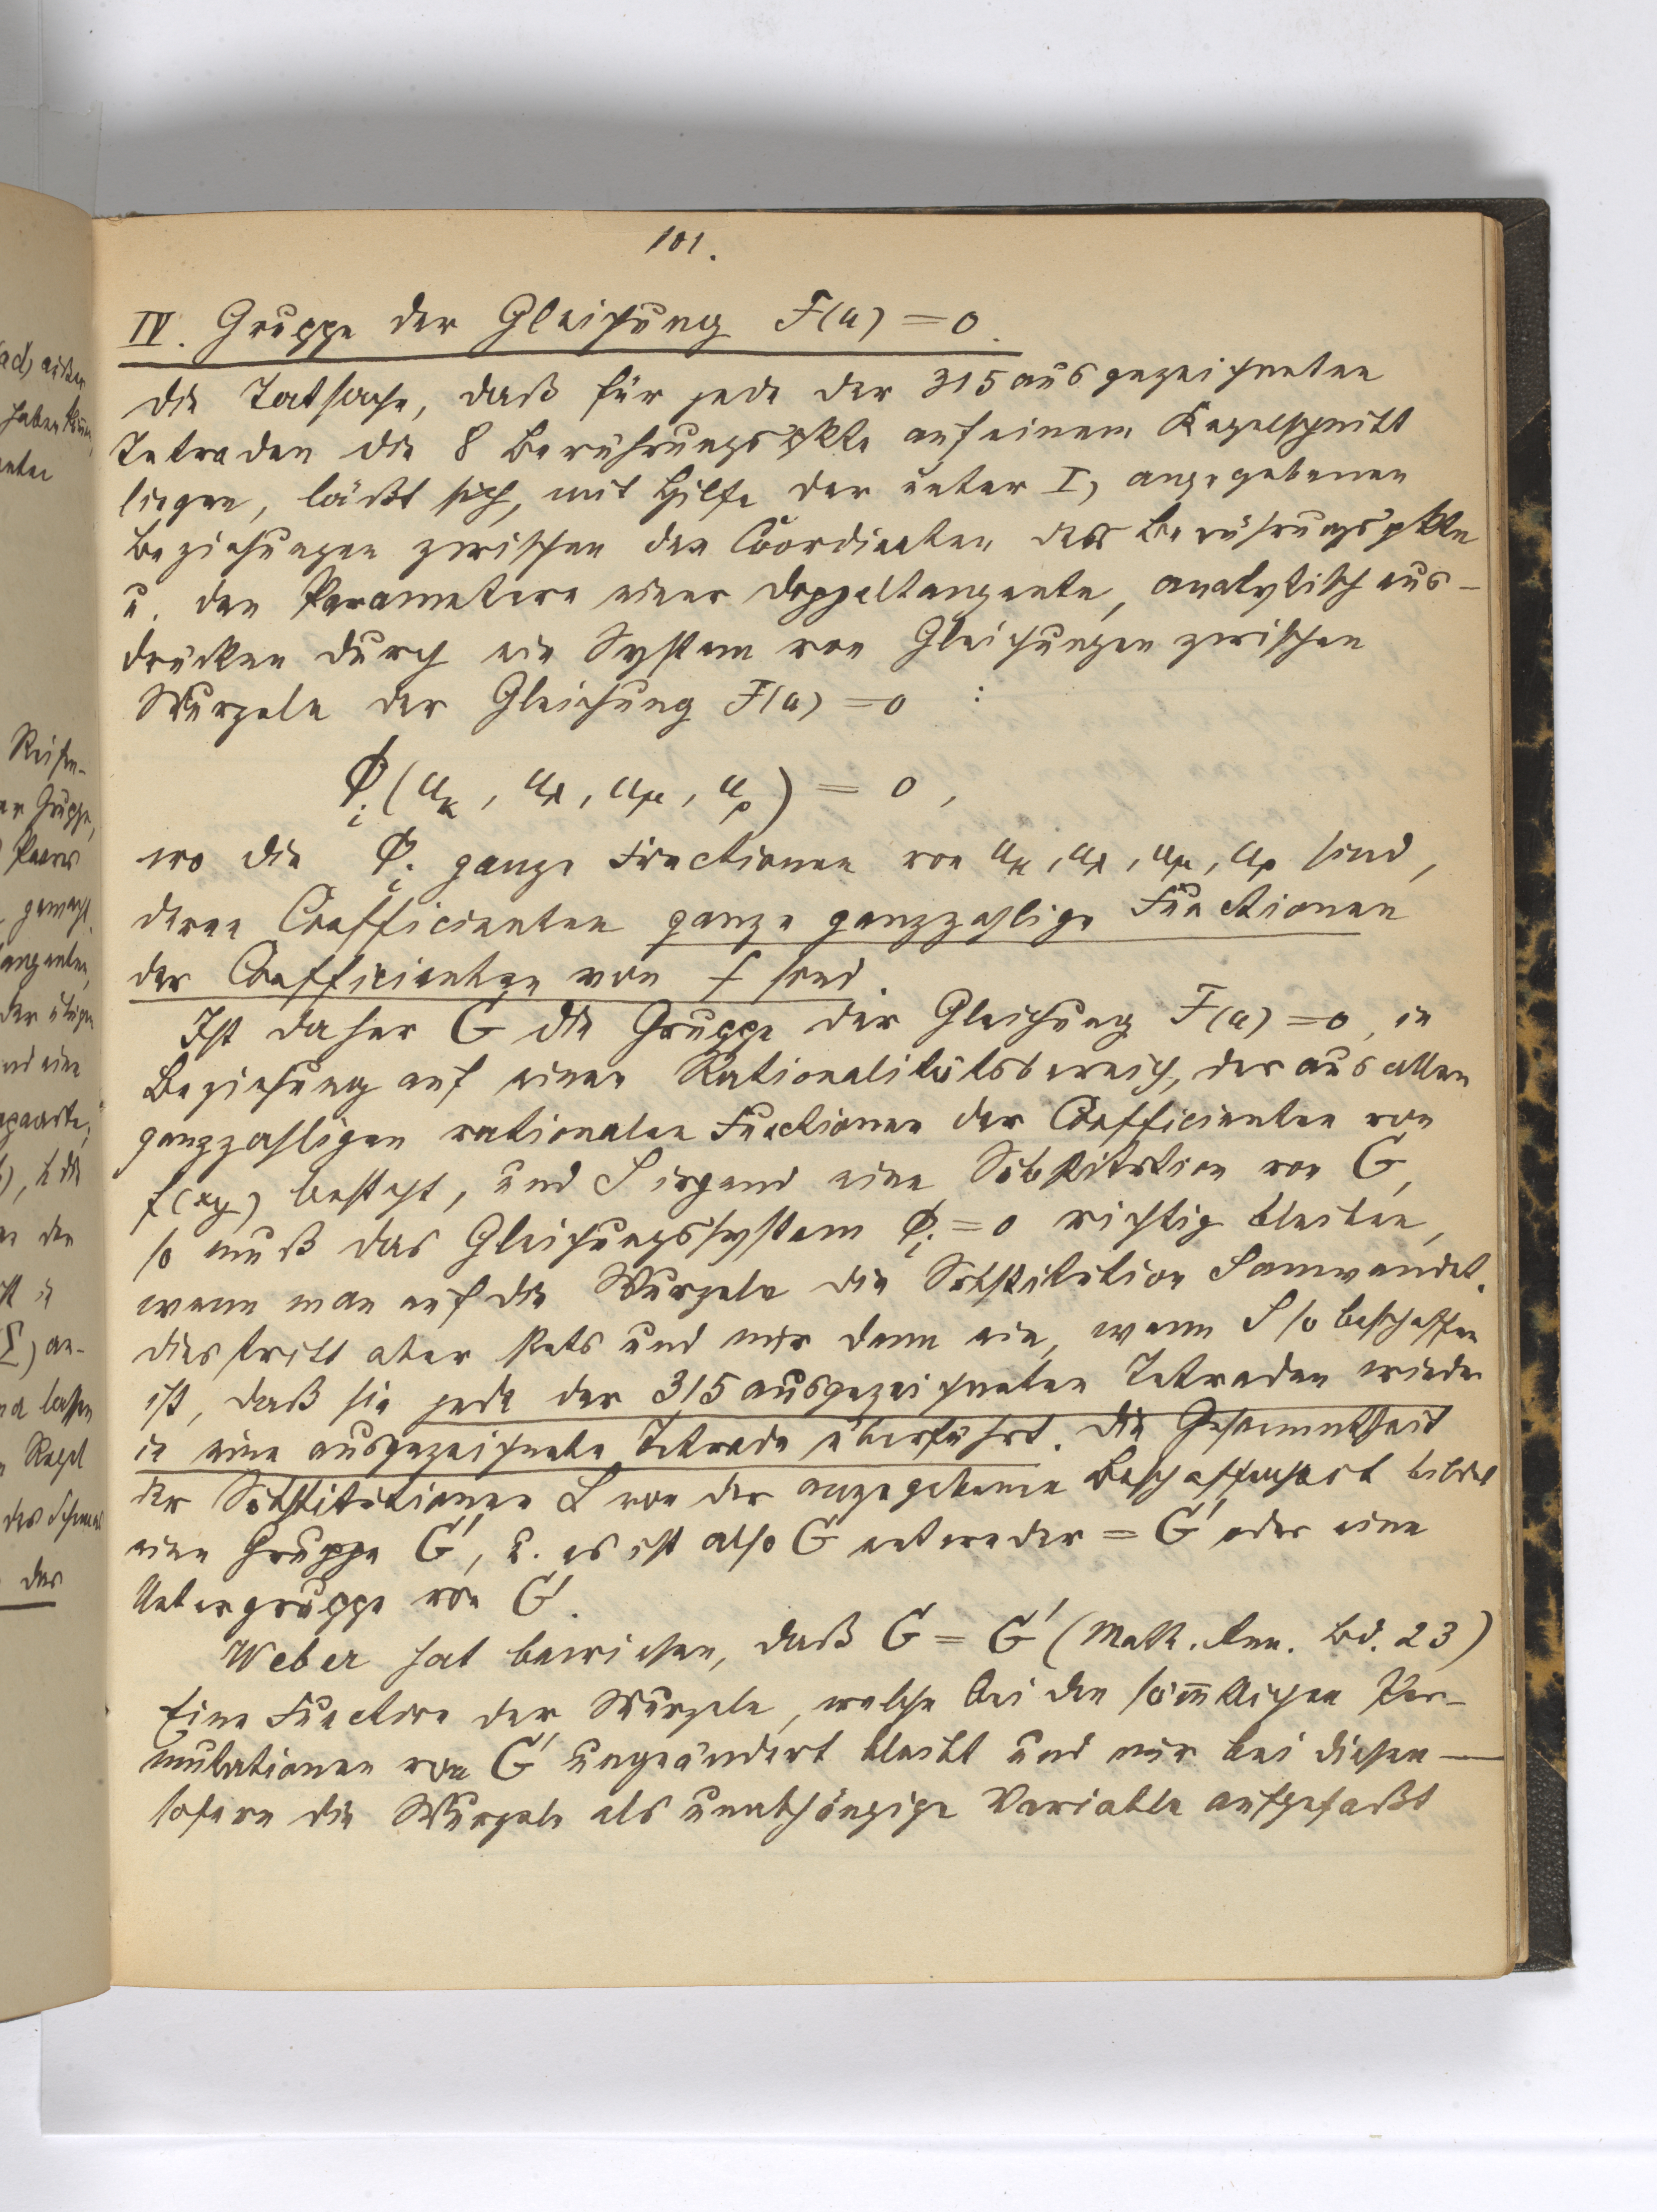 101.
IV. Gruppe der Gleichung F(u) = 0.
Die Tatsache, daß für jede der 315 ausgezeichneten
Tetraden die 8 Berührungspkte auf einem Kegelschnitt
liegen, läßt sich, mit Hilfe der unter I, angegebenen
Beziehungen zwischen den Coordinaten der Berührungspkte
u. den Parametern einer Doppeltangente, analytisch aus-
drücken durch ein System von Gleichungen zwischen
Wurzeln der Gleichung F(u) = 0 :
Φi (uκ, uλ, uμ, uρ) = 0,
wo die Φi ganze Functionen von uκ, uλ, uμ, uρ sind,
deren Coefficienten ganze ganzzahlige Functionen
der Coefficienten von f sind.
Ist daher G die Gruppe der Gleichung F(u) = 0, in
Beziehung auf einen Rationalitätsbereich, der aus allen
ganzzahligen rationalen Functionen der Coefficienten von
f(xy) besteht, und S irgend eine Substitution von G,
so muß das Gleichungssystem Φi = 0 richtig bleiben,
wenn man auf die Wurzeln die Substitution S anwendet.
Dies tritt aber stets und nur dann ein, wenn S so beschaffen
ist, daß sie jede der 315 ausgezeichneten Tetraden wieder
in eine ausgezeichnete Tetrade überführt. Die Gesammtheit
der Substitutionen S von der angegebenen Beschaffenheit bildet
eine Gruppe G', u. es ist also G entweder = G' oder eine
Untergruppe von G'.
Weber hat bewiesen, daß G = G' (Math. Ann. Bd. 23)
Eine Function der Wurzeln, welche bei den sämtlichen Per-
mutationen von G' ungeändert bleibt und nur bei diesen —
sofern die Wurzeln als unabhängige Variable aufgefaßt